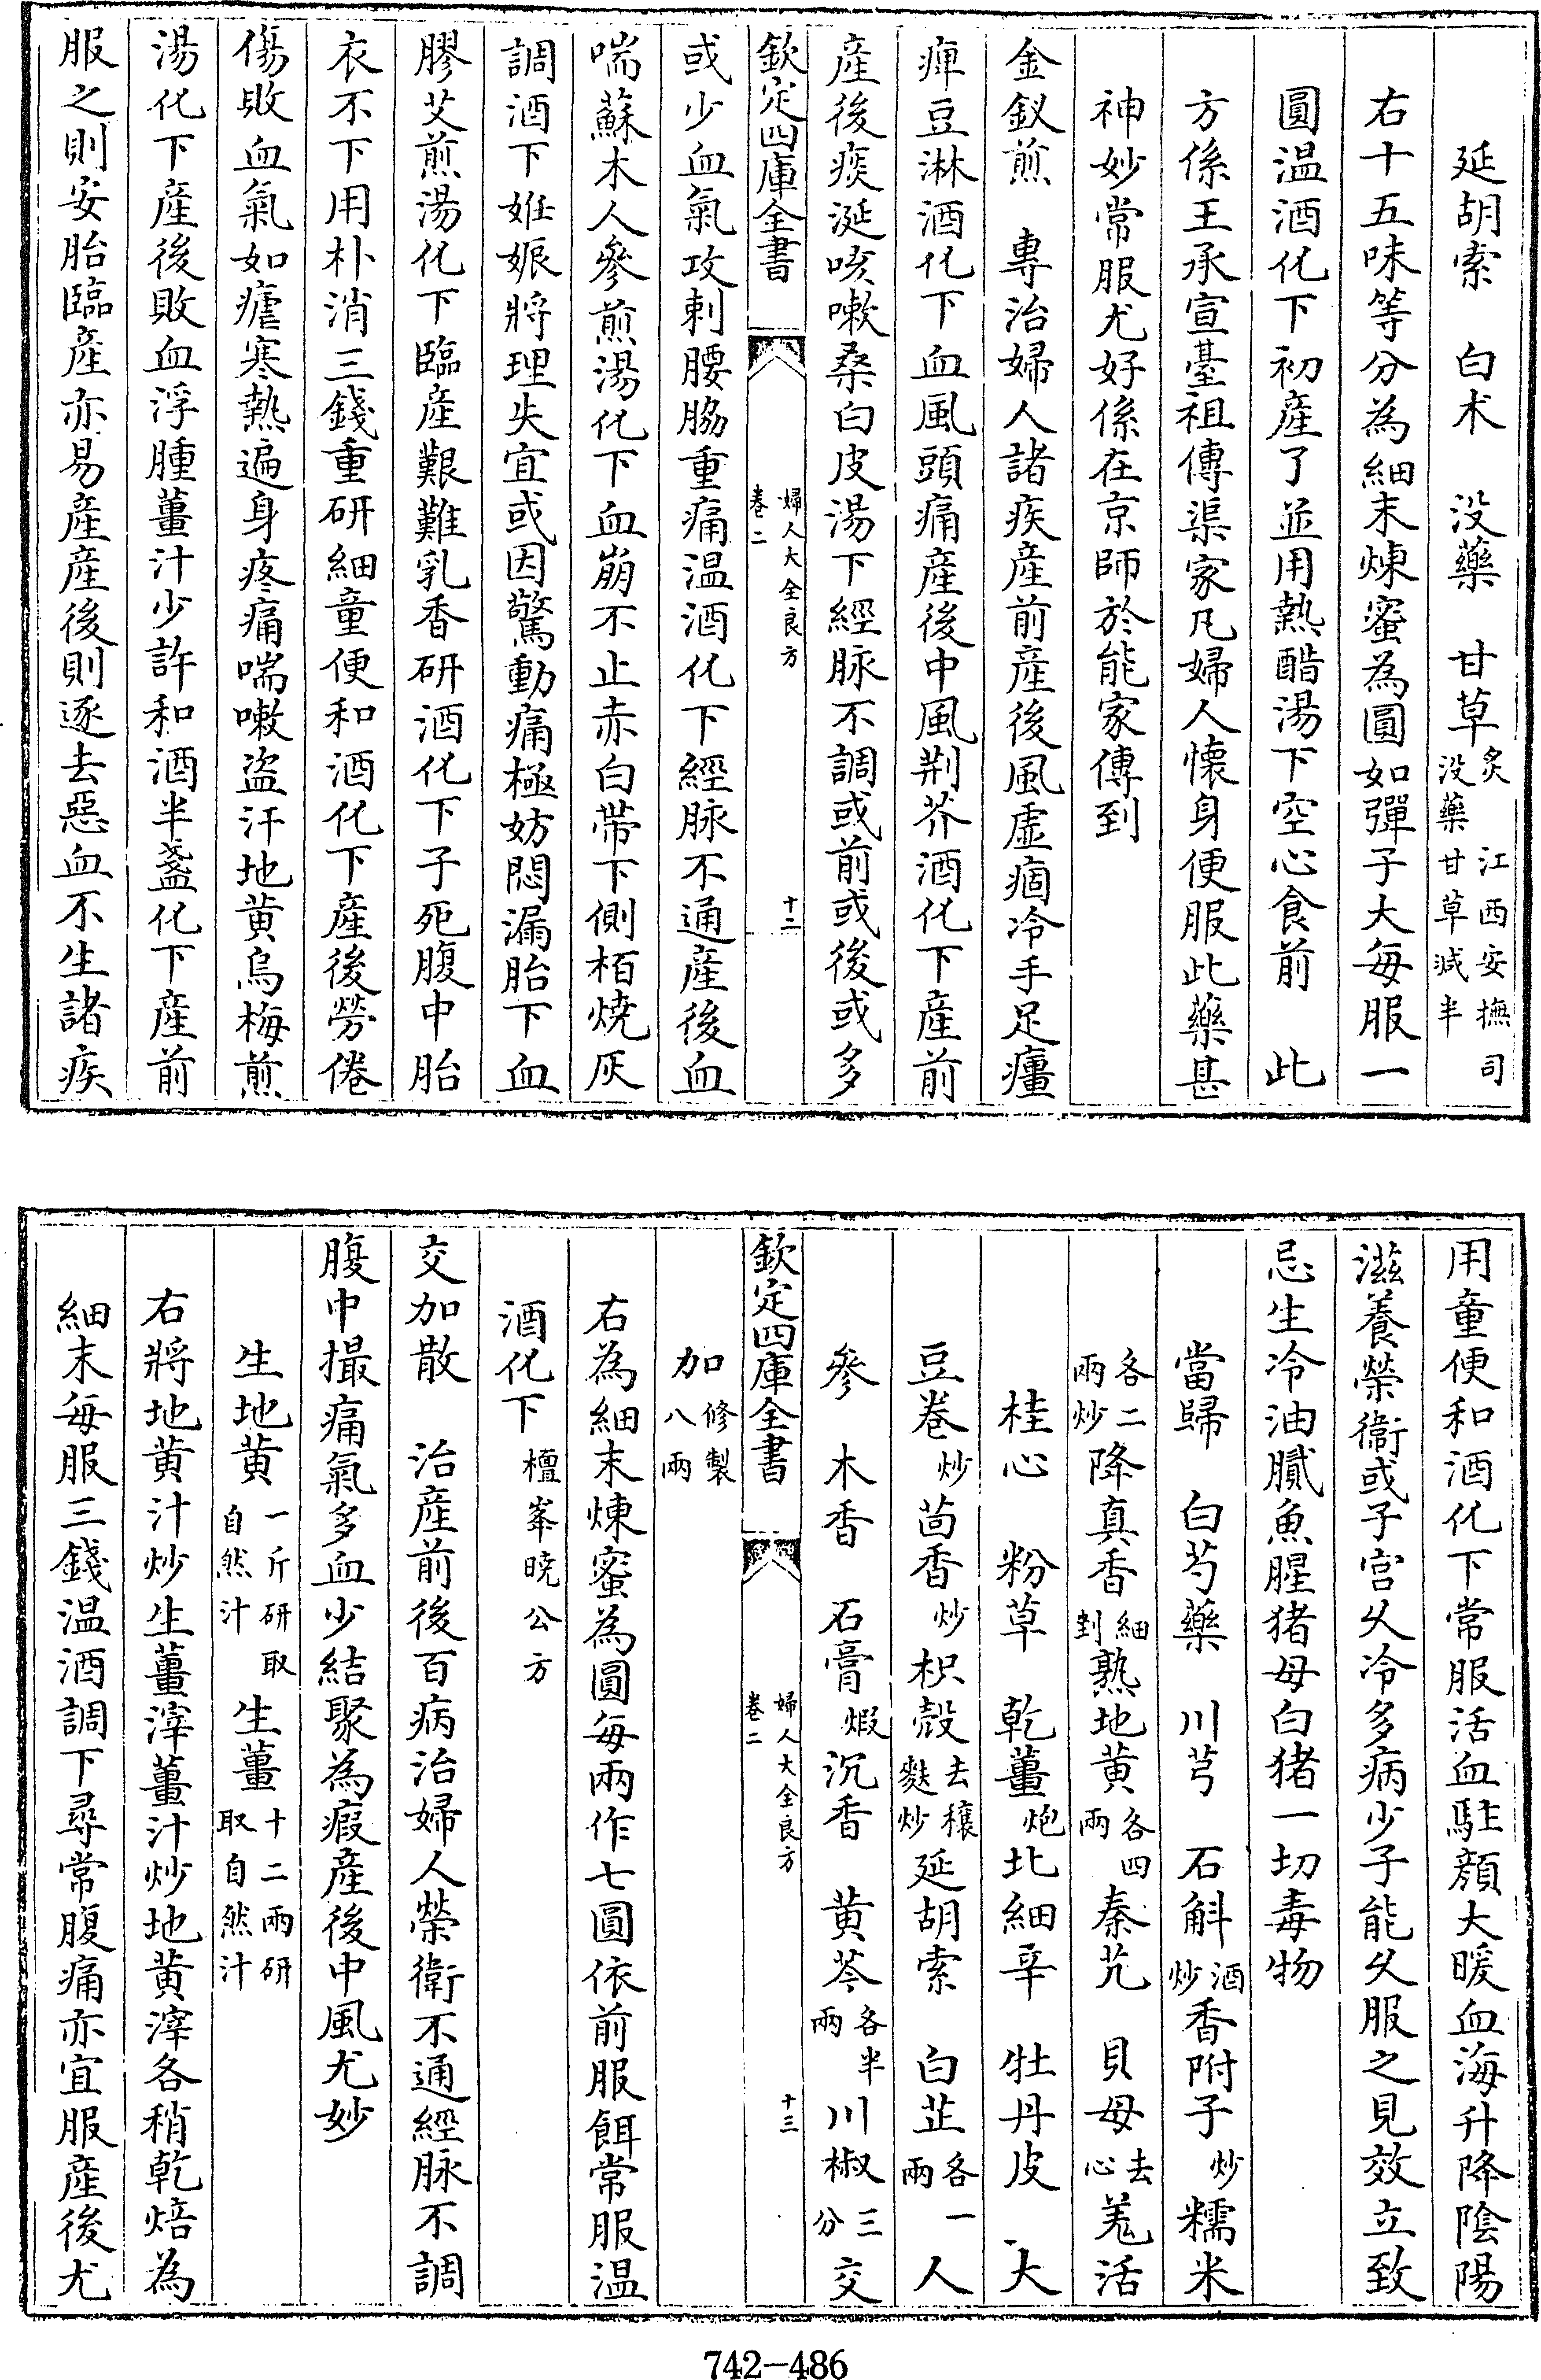 延胡索　白朮　没藥　甘草炙　江西安撫司没藥甘草減半
右十五味等分為細末煉蜜為圓如彈子大每服一
圓温酒化下初產了並用熱醋湯下空心食前　此
方係王承宣臺祖傳渠家凡婦人懷身便服此藥甚
神妙常服尤好係在京師於能家傳到
金釵煎　專治婦人諸疾產前產後風虛痼冷手足癱
痺豆淋酒化下血風頭痛產後中風荆芥酒化下產前
產後痰涎咳嗽桑白皮湯下經脉不調或前或後或多
欽定四庫全書　婦人大全良方卷二　十二
或少血氣攻刺腰脇重痛温酒化下經脉不通產後血
喘蘇木人參煎湯化下血崩不止赤白帶下側栢燒灰
調酒下姙娠將理失宜或因驚動痛極妨悶漏胎下血
膠艾煎湯化下臨產艱難乳香研酒化下子死腹中胎
衣不下用朴消三錢重研細童便和酒化下產後勞倦
傷敗血氣如瘧寒熱遍身疼痛喘嗽盗汗地黄烏梅煎
湯化下產後敗血浮腫薑汁少許和酒半盞化下產前
服之則安胎臨產亦易產產後則逐去惡血不生諸疾
用童便和酒化下常服活血駐顔大暖血海升降陰陽
滋養榮衞或子宫久冷多病少子能久服之見效立致
忌生冷油膩魚腥猪母白猪一切毒物
當歸　白芍藥　川芎　石斛酒炒香附子炒糯米
各二兩炒降真香細剉熟地黄各四兩秦艽　貝母去心羗活
桂心　粉草　乾薑炮北細辛　牡丹皮　大
豆卷炒茴香炒枳殼去穰麩炒延胡索　白芷各一兩人
參　木香　石膏煅沉香　黄芩各半兩川椒三分交
欽定四庫全書　婦人大全良方卷二　十三
加修製八兩
右為細末煉蜜為圓每兩作七圓依前服餌常服温
酒化下檀峯曉公方
交加散　治產前後百病治婦人榮衛不通經脉不調
腹中撮痛氣多血少結聚為瘕產後中風尤妙
生地黄一斤研取自然汁生薑十二兩研取自然汁
右將地黄汁炒生薑滓薑汁炒地黄滓各稍乾焙為
細末每服三錢温酒調下尋常腹痛亦宜服產後尤
742-486